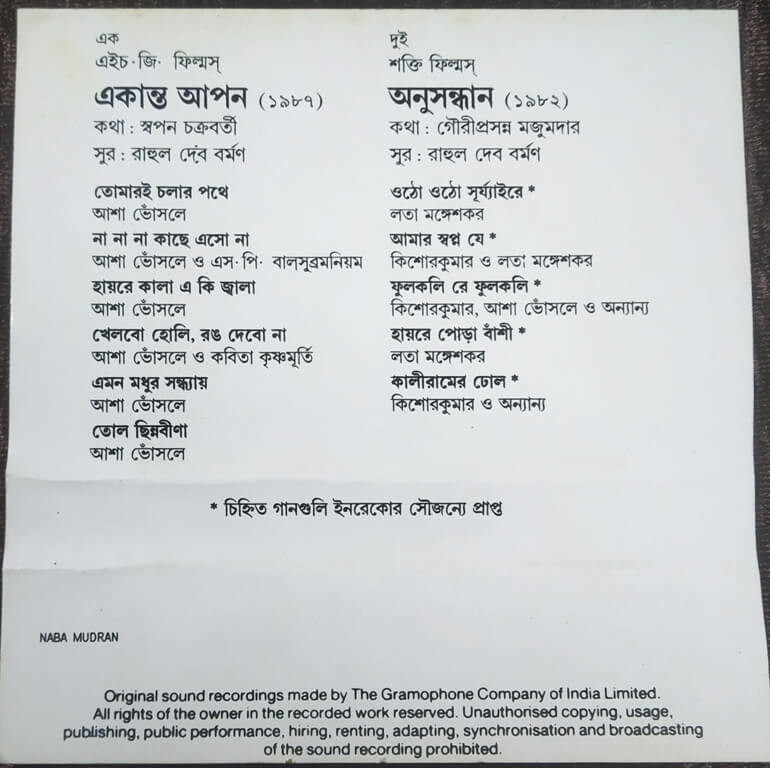 এক
এইচ·জি· ফিল্মস্
একান্ত আপন (১৯৮৭)
কথা : স্বপন চক্রবর্তী
সুর : রাহুল দেব বর্মণ
তোমারই চলার পথে
আশা ভোঁসলে
না না না কাছে এসো না
আশা ভোঁসলে ও এস·পি· বালসুব্রমনিয়ম
হায়রে কালা এ কি জ্বালা
আশা ভোঁসলে
খেলবো হোলি, রঙ দেবো না
আশা ভোঁসলে ও কবিতা কৃষ্ণমূর্তি
এমন মধুর সন্ধ্যায়
আশা ভোঁসলে
তোল ছিন্নবীণা
আশা ভোঁসলে
দুই
শক্তি ফিল্মস্
অনুসন্ধান (১৯৮২)
কথা : গৌরীপ্রসন্ন মজুমদার
সুর : রাহুল দেব বর্মণ
ওঠো ওঠো সূর্য্যাইরে *
লতা মঙ্গেশকর
আমার স্বপ্ন যে *
কিশোরকুমার ও লতা মঙ্গেশকর
ফুলকলি রে ফুলকলি *
কিশোরকুমার, আশা ভোঁসলে ও অন্যান্য
হায়রে পোড়া বাঁশী *
লতা মঙ্গেশকর
কালীরামের ঢোল *
কিশোরকুমার ও অন্যান্য
* চিহ্নিত গানগুলি ইনরেকোর সৌজন্যে প্রাপ্ত
NABA MUDRAN
Original sound recordings made by The Gramophone Company of India Limited.
All rights of the owner in the recorded work reserved. Unauthorised copying, usage,
publishing, public performance, hiring, renting, adapting, synchronisation and broadcasting
of the sound recording prohibited.